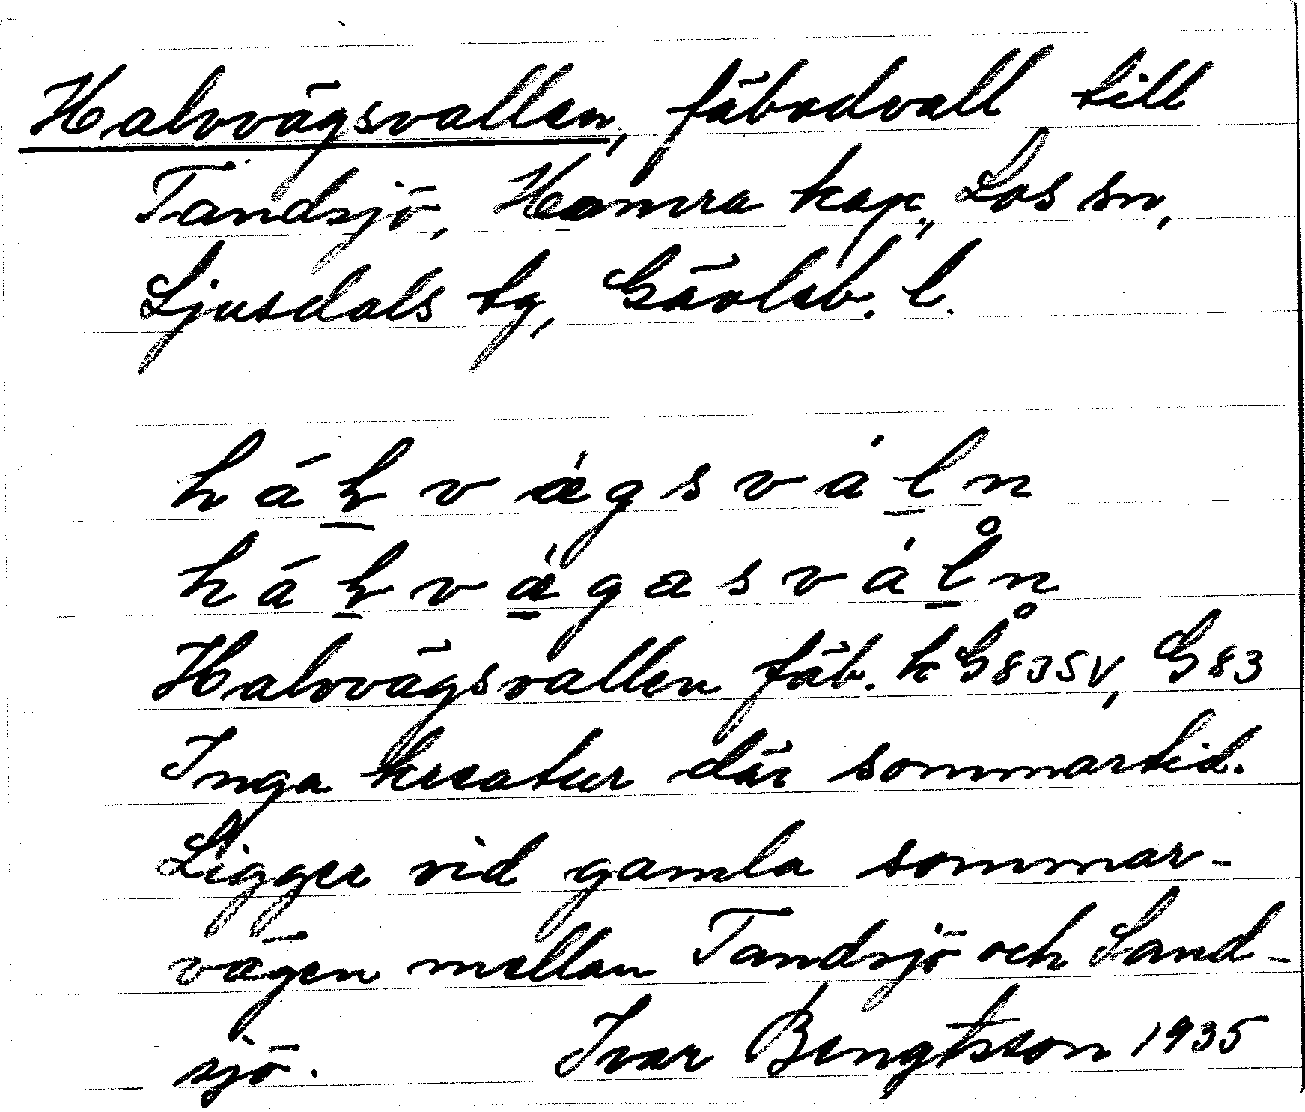 Halvvägsvallen, fäbodvall till
Tandsjö, Hamra kap., Los sn,
Ljusdals tg, Gävleb. l.
Halvvägsvallen fäb. k G835V, G83
Inga kreatur där sommartid.
Ligger vid gamla sommar-
vägen mellan Tandsjö och Sand-
sjö. Ivar Bengtsson 1935